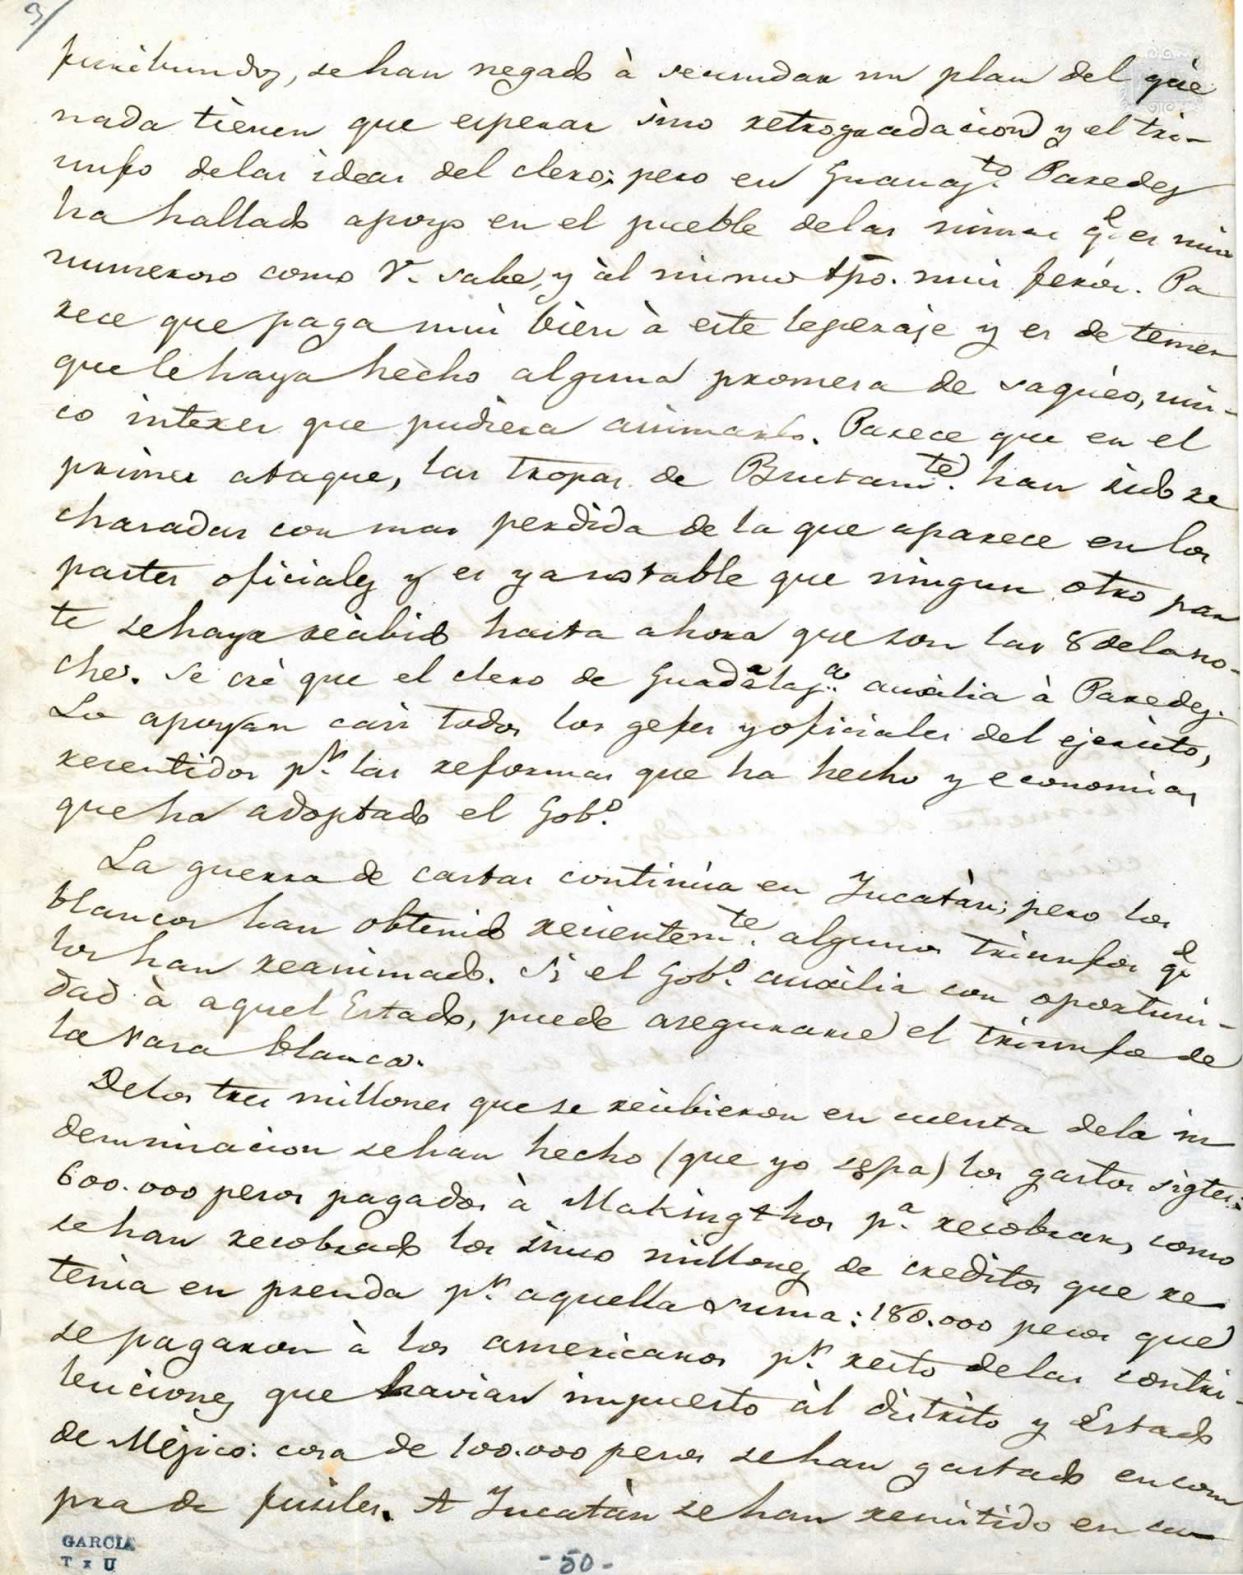 9/
furibundos, se han negado à secundar un plan del què
nada tienen que esperar sino retrogradacion y el tri-
unfo de las ideas del clero; pero en Guanajto. Paredes
ha hallado apoyo en el pueble de las minas qe. es mui
numeroso como V. sabe, y àl mismo tpo. mui feròz. Pa
rece que paga mui bien à este leperaje y es de temer
que le haya hecho alguna promesa de saquèo, uni-
co interes que pudiera animarlo. Parece que en el
primer ataque, las tropas de Bustamte. han sido re
chasadas con mas perdida de la que aparece en los
partes oficiales y es ya notable que ningun otro par
te se haya recibido hasta ahora que son las 8 de la no-
che. Se crè que el clero de Guadalaja. auxilia à Paredes.
Lo apoyan casi todos los gefes y oficiales del ejercito,
resentidos pr. las reformas que ha hecho y economias
que ha adoptado el Gobo.
La guerra de castas continùa en Yucatàn; pero los
blancos han obtenido recientemte. algunos triunfos qe
los han reanimado. Si el Gobo. auxilia con oportuni-
dad à aquel Estado, puede asegurarse el triunfo de
la rasa blanca.
De los tres millones que se recibieron en cuenta de la in
demnisacion se han hecho (que yo sepa) los gastos sigtes:
600.000 pesos pagados à Makingthos pa. recobrar, como
se han recobrado los sinco millones de creditos que re
tenia en prenda pr. aquella suma: 180.000 pesos que
se pagaron à los americanos pr. resto de las contri-
buciones que havian impuesto àl distrito y Estado
de Mèjico: cosa de 100.000 pesos se han gastado en com
pra de fusiles. A Yucatàn se han remitido en cu
GARCIA
T x U
- 50 -